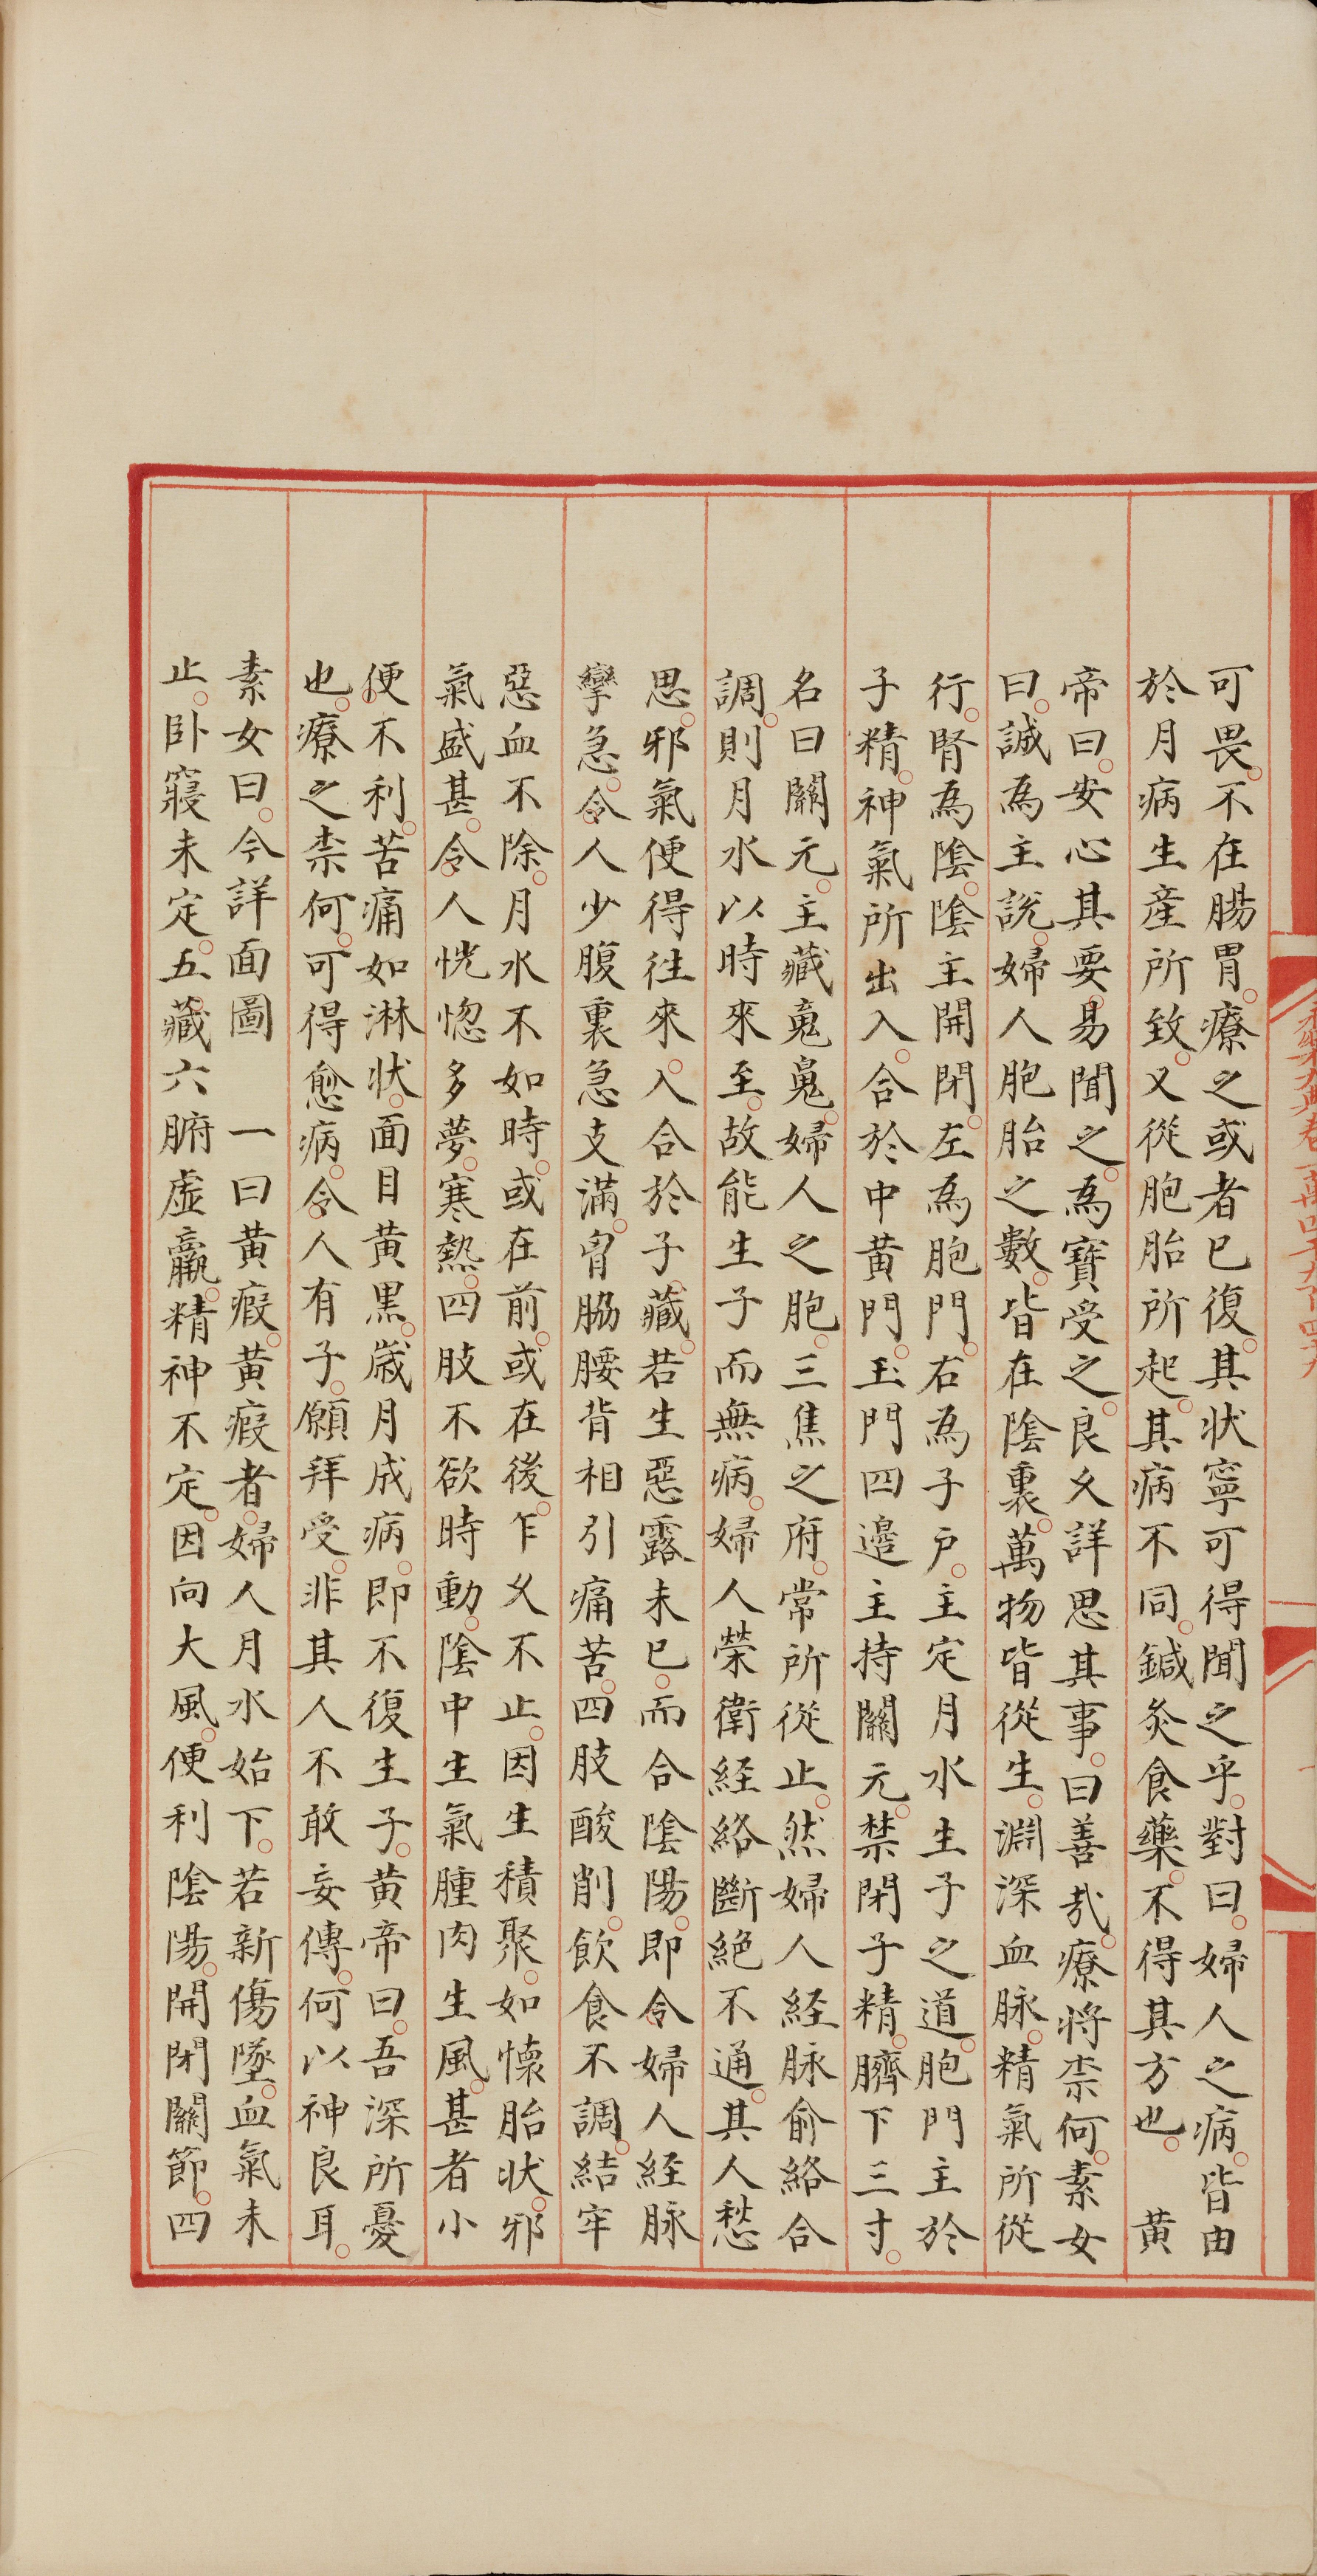 可畏不在腸胃療之或者已復其狀寧可得聞之乎對曰婦人之病皆由
於月病生產所致又從胞胎所起其病不同鍼灸食藥不得其方也　黃
帝曰安心其要易聞之為寶受之良久詳思其事曰善哉療將柰何素女
曰誠為主說婦人胞胎之數皆在陰裏萬物皆從生淵深血脉精氣所從
行腎為陰陰主開閉左為胞門右為子戶主定月水生子之道胞門主於
子精神氣所出入合於中黃門玉門四邊主持關元禁閉子精臍下三寸
名曰關元主藏䰟䰟婦人之胞三焦之府常所從止然婦人經脉俞絡合
調則月水以時來至故能生子而無病婦人榮衛經絡斷絕不通其人愁
思邪氣便得往來入合於子藏若生惡露未已而合陰陽即令婦人經脉
攣急令人少腹裏急支滿胷脇腰背相引痛苦四肢酸削飲食不調結牢
惡血不除月水不如時或在前或在後乍久不止因生積聚如懷胎狀邪
氣盛甚令人恍惚多夢寒熱四肢不欲時動陰中生氣腫肉生風甚者小
便不利苦痛如淋狀面目黃黑歲月成病即不復生子黃帝曰吾深所憂
也療之柰何可得愈病令人有子願拜受非其人不敢妄傳何以神良耳
素女曰今詳面圖　一曰黃瘕黃瘕者婦人月水始下若新傷墜血氣未
止臥寢未定五藏六腑虛羸精神不定因向大風便利陰陽開閉關節四